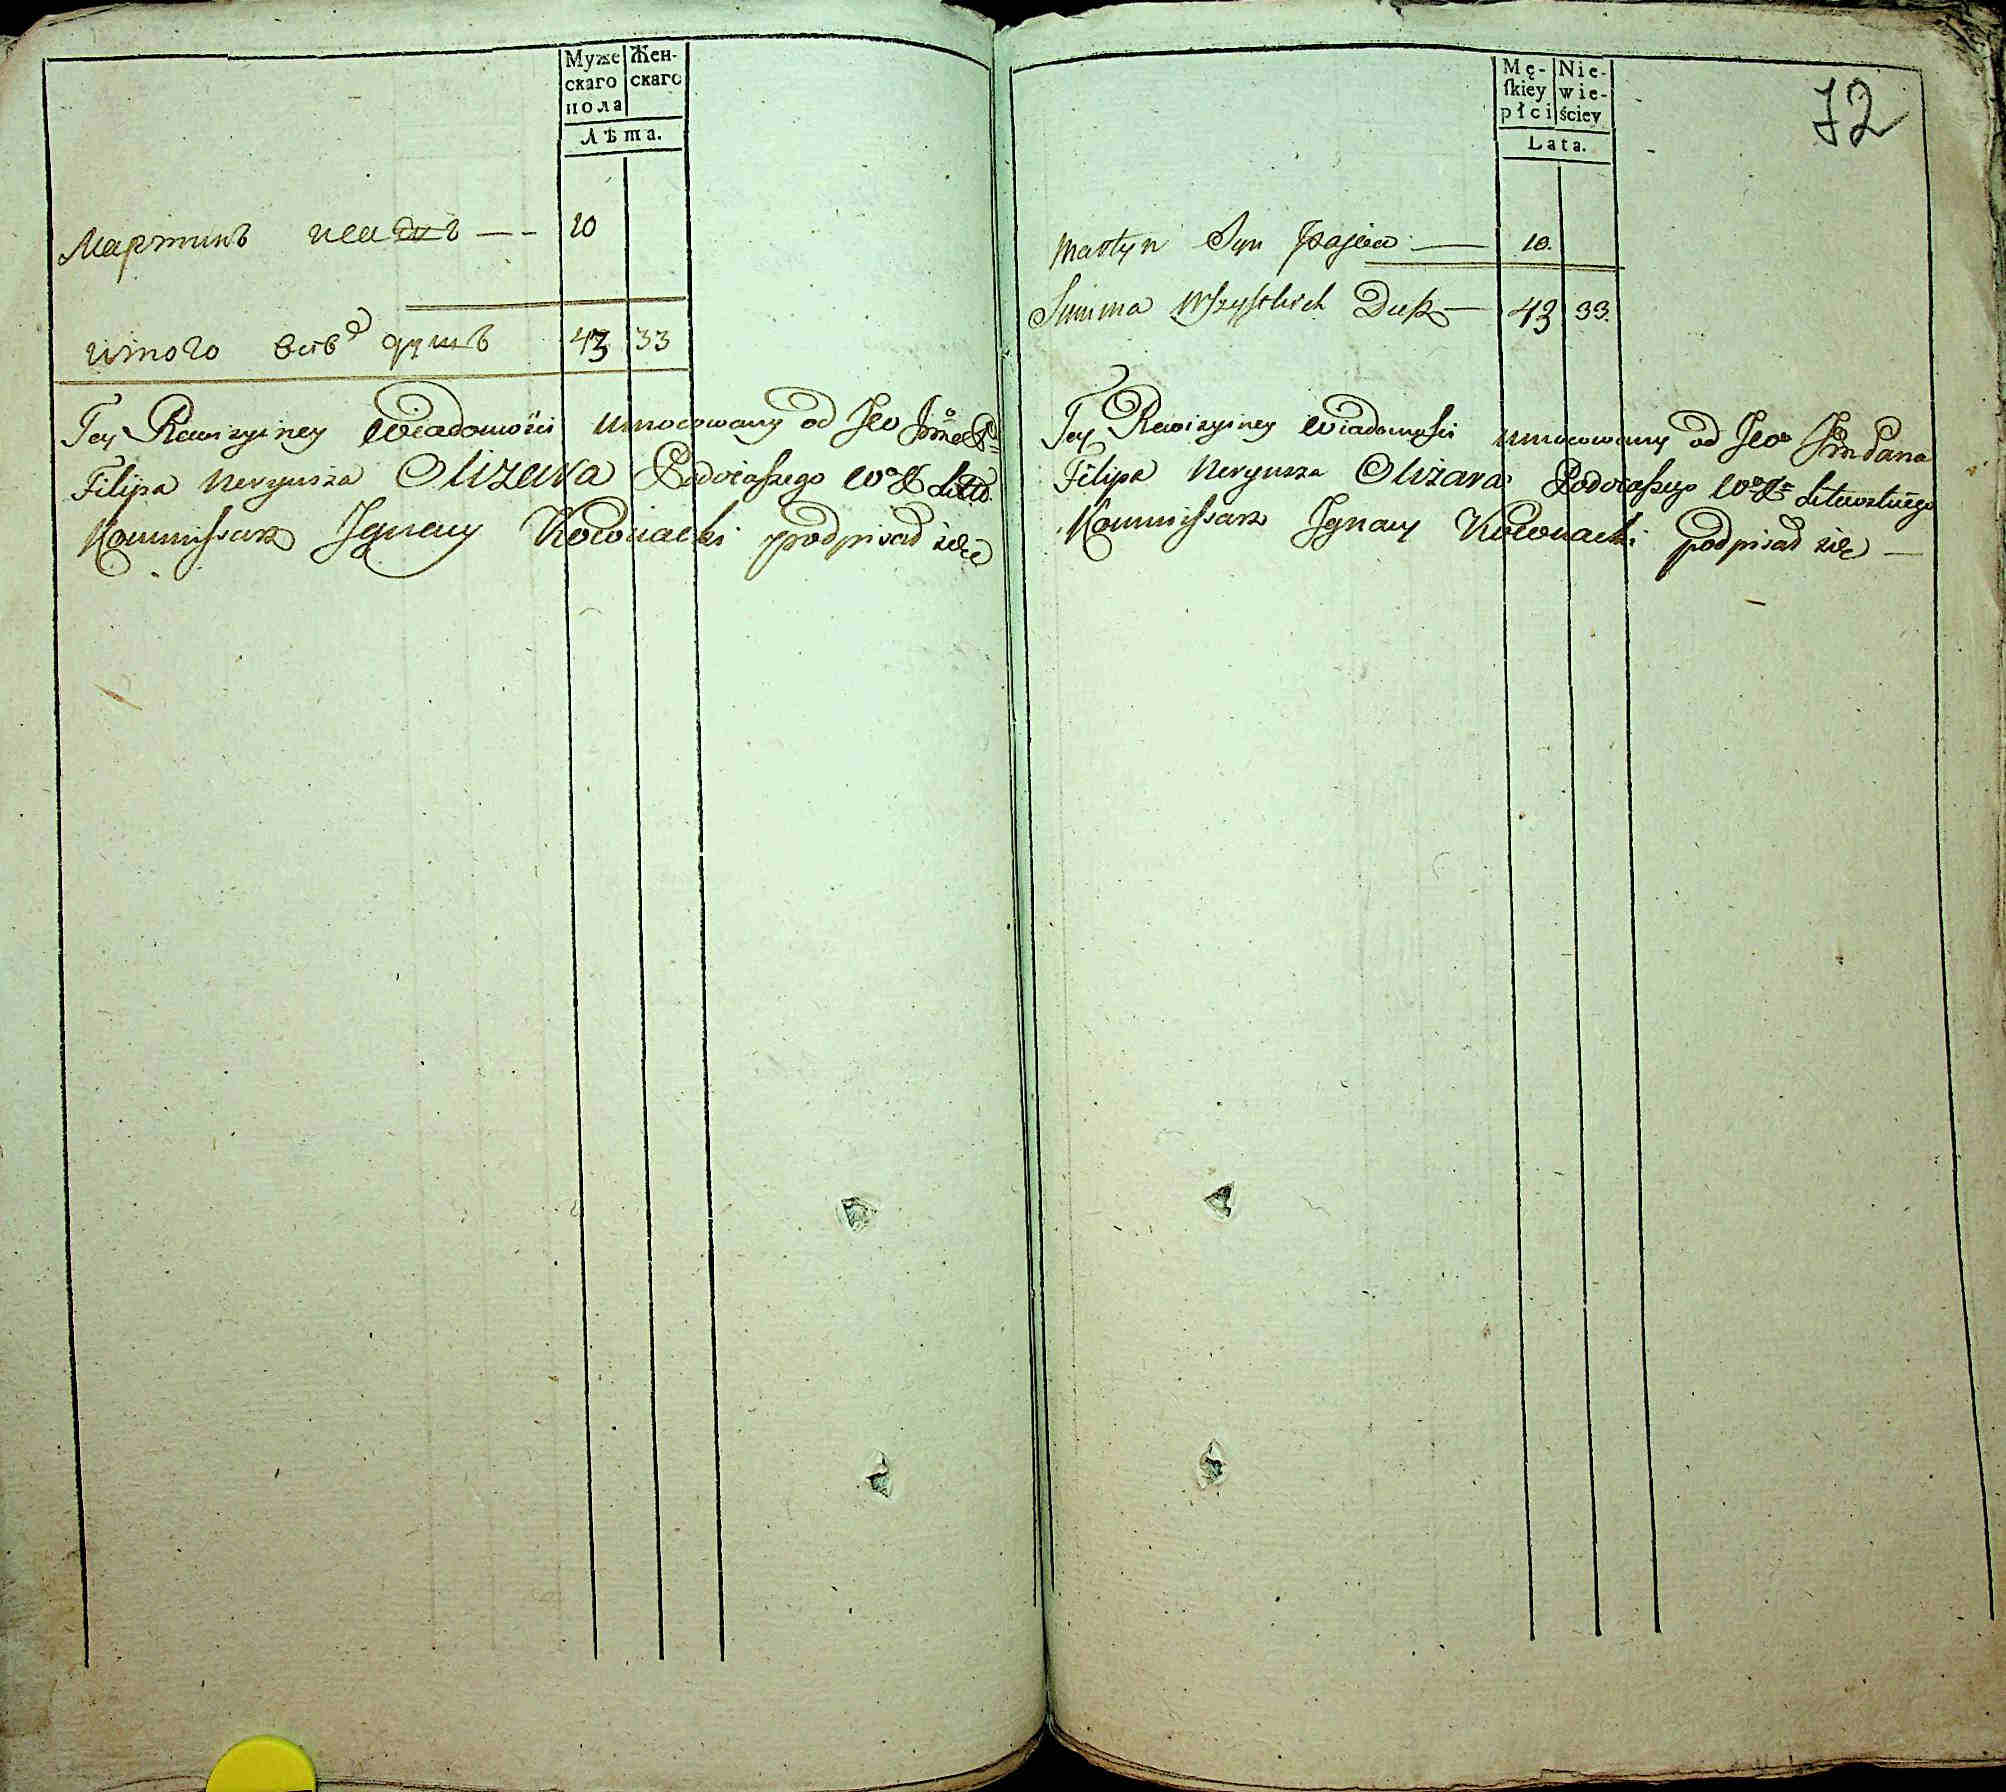 Муже
скаго
пола
Жен-
скаго
Лѣта.
Мартинъ — — 10
итого всѣ душъ 43 33
Tey Rewizyiney Wiadomości umocowany od Jeo
Filipa Neryusza Olizara Podczaszego W X Litt
Kommissarz Ignacy podpisał się
Mę-
ſkiey
płci
Nie-
wie-
ściey
Lata.
72
Martyn Syn — 10.
Summa Wszystkich Dusz — 43 33.
Tey Rewizyiney Wiadomości umocowany od Jeo Pana
Filipa Neryusza Olizara Podczaszego W X Litewskiego
Kommissarz Ignacy podpisał się —